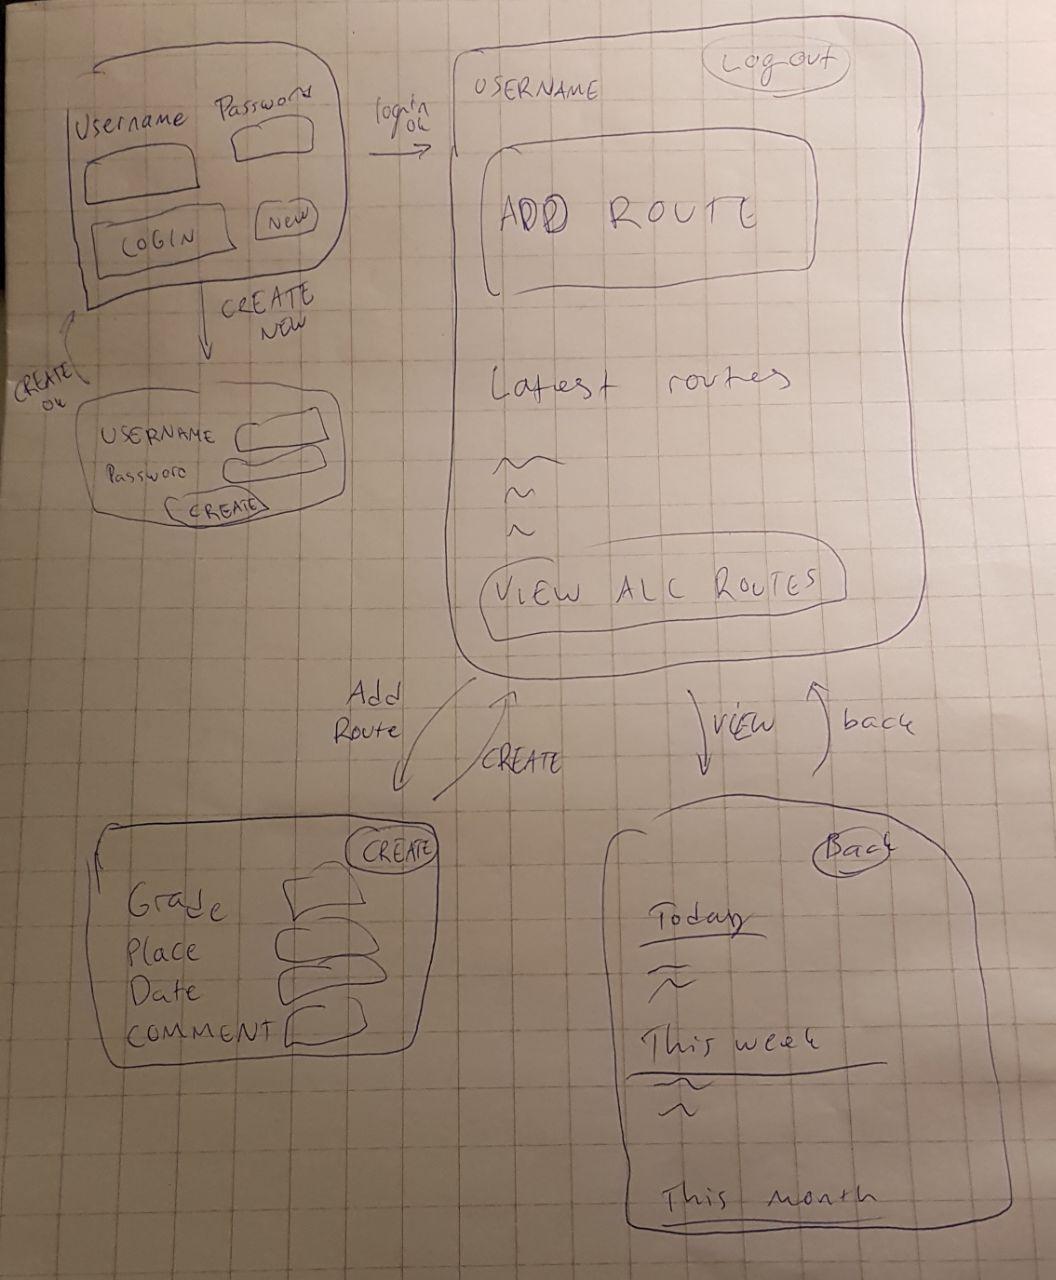 Username
Password
LOGIN
New
login
ok
CREATE
NEW
CREATE
OK
USERNAME
Password
CREATE
USERNAME
Log out
ADD ROUTE
Latest routes
VIEW ALL ROUTES
Add
Route
CREATE
VIEW
back
CREATE
Grade
Place
Date
COMMENT
Back
Today
This week
This month